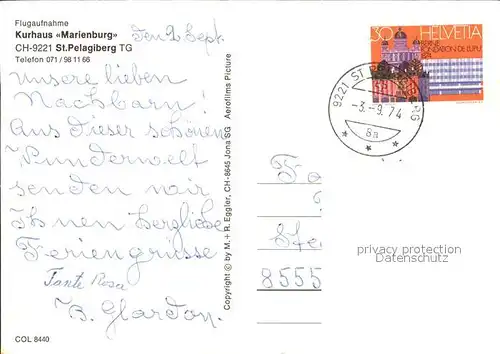 Flugaufnahme
Kurhaus «Marienburg»
CH-9221 St.Pelagiberg TG
Telefon 071 / 98 11 66
Den 2 Sept.
unsere lieben
Nachbarn!
Aus dieser schönen
Wunderwelt
senden wir
Ihnen herzliche
Feriengrüsse
Tante Rosa
B. Glardon.
COL 8440
Copyright © by M. + R. Eggler, CH-8645 Jona SG Aerofilms Picture
30 HELVETIA
FONDATION DE L'UPU
1874
9221 ST. PELAGIBERG
-3.-9.74
8555
privacy protection
Datenschutz